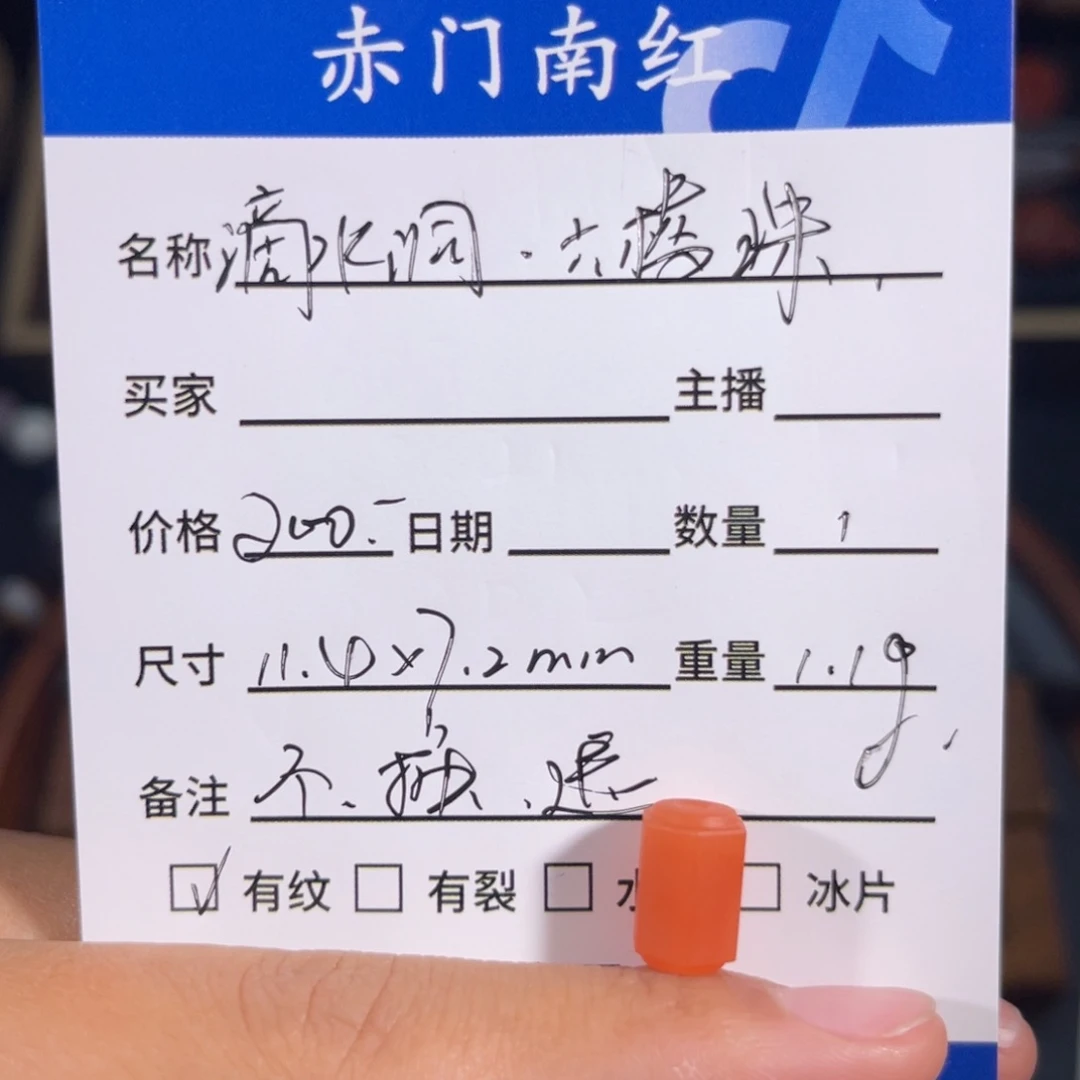 赤门南红
名称 滴水洞·六棱珠
买家 主播
价格 200.- 日期 数量 1
尺寸 11.4×7.2mm 重量 1.1g
备注 不、换、退
☑ 有纹 □ 有裂 □ 水 □ 冰片